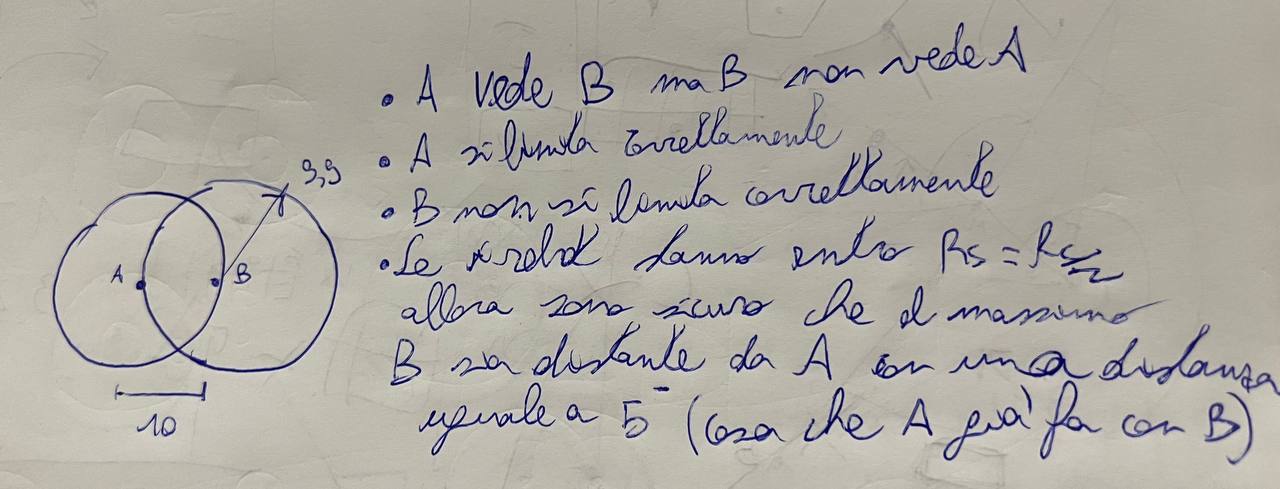 • A vede B ma B non vede A
• A si limita correttamente
9,9
• B non si limita correttamente
A
B
• Se i robot stanno entro Rs = Rs/2
allora sono sicuro che al massimo
B sia distante da A con una distanza
10
uguale a 5 (cosa che A già fa con B)